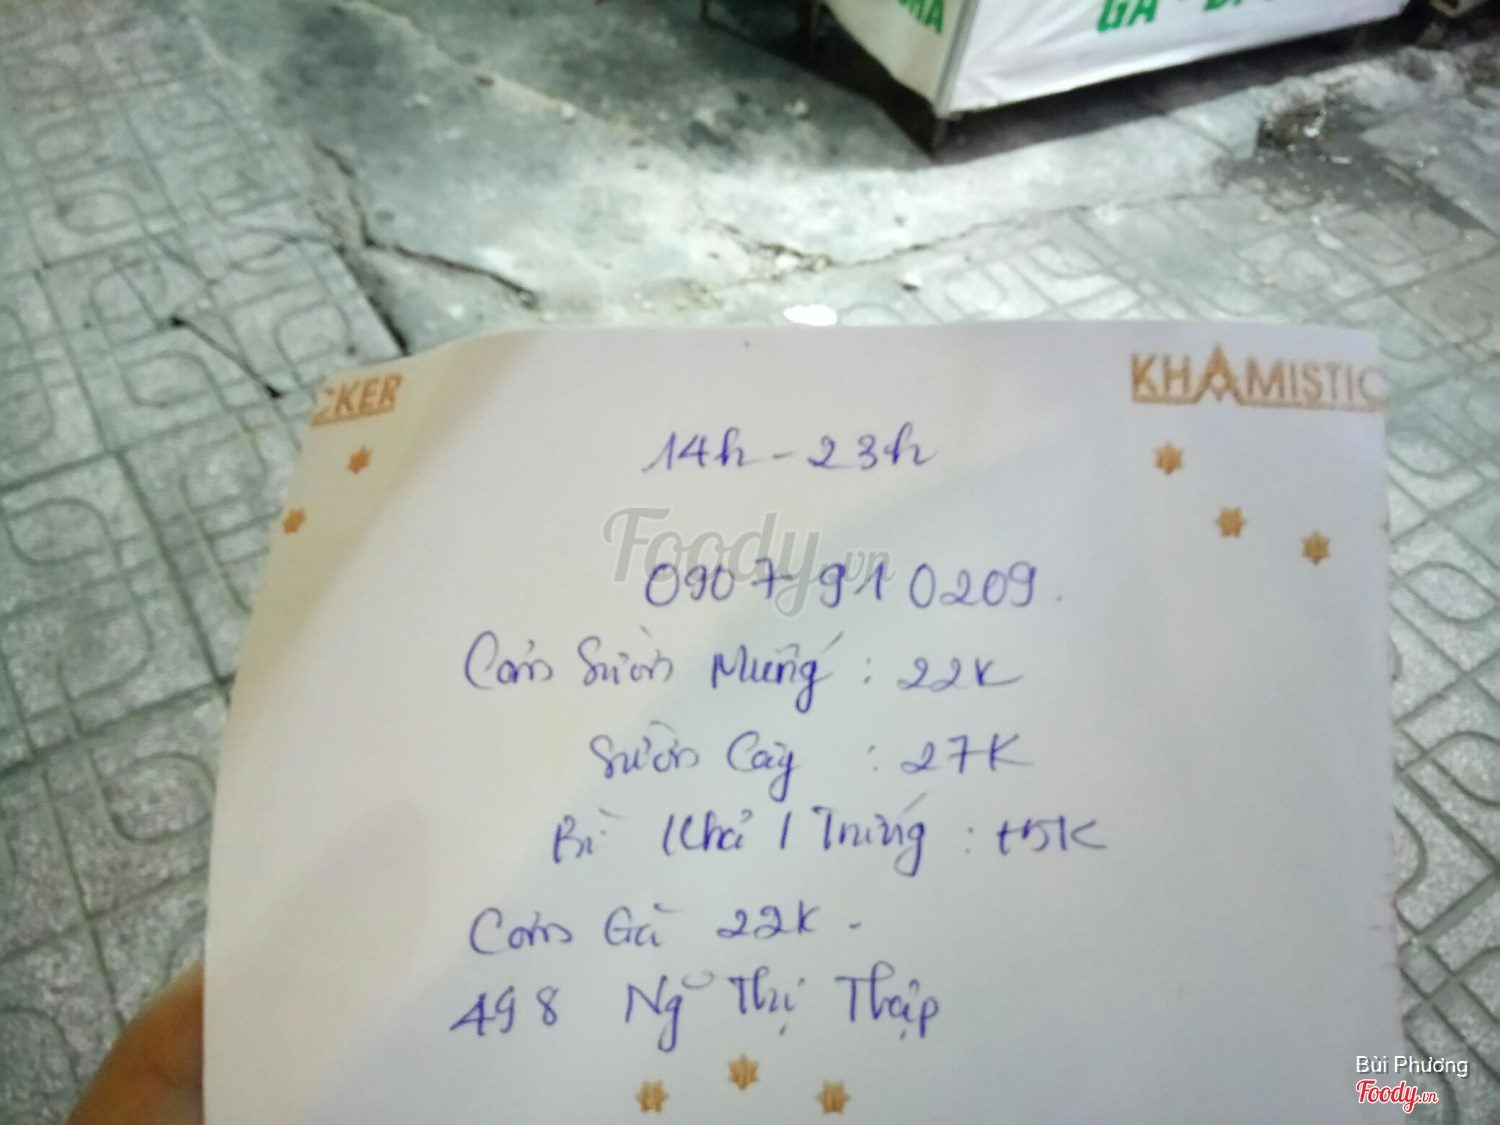 GÀ -
CKER
KHAMISTIC
14h - 23h
Foody.vn
0907 910209.
Cơm Sườn Muống : 22K
Sườn Cây : 27K
Bì Khả 1 Trứng : +5K
Cơm Gà 22K -
498 Ng~ Thị Thập
Bùi Phương
Foody.vn